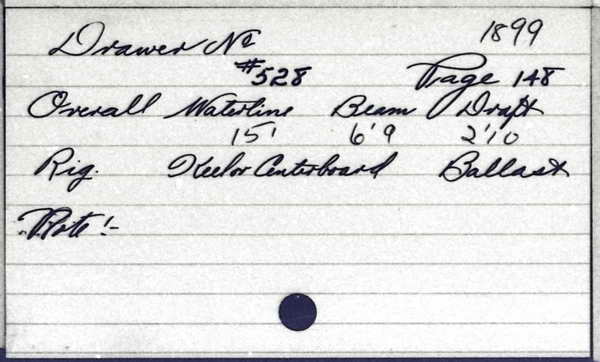 Drawer No 1899
#528 Page 148
Overall Waterline Beam Draft
15' 6'9 2'10
Rig. Keel or Centerboard Ballast
Note!-